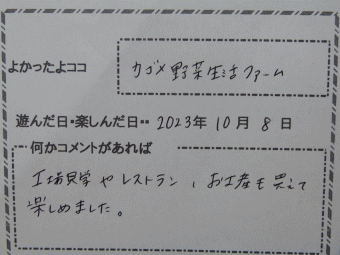 よかったよココ
カゴメ野菜生活ファーム
遊んだ日・楽しんだ日・・ 2023年 10月 8日
何かコメントがあれば
工場見学やレストラン、お土産も買えて
楽しめました。